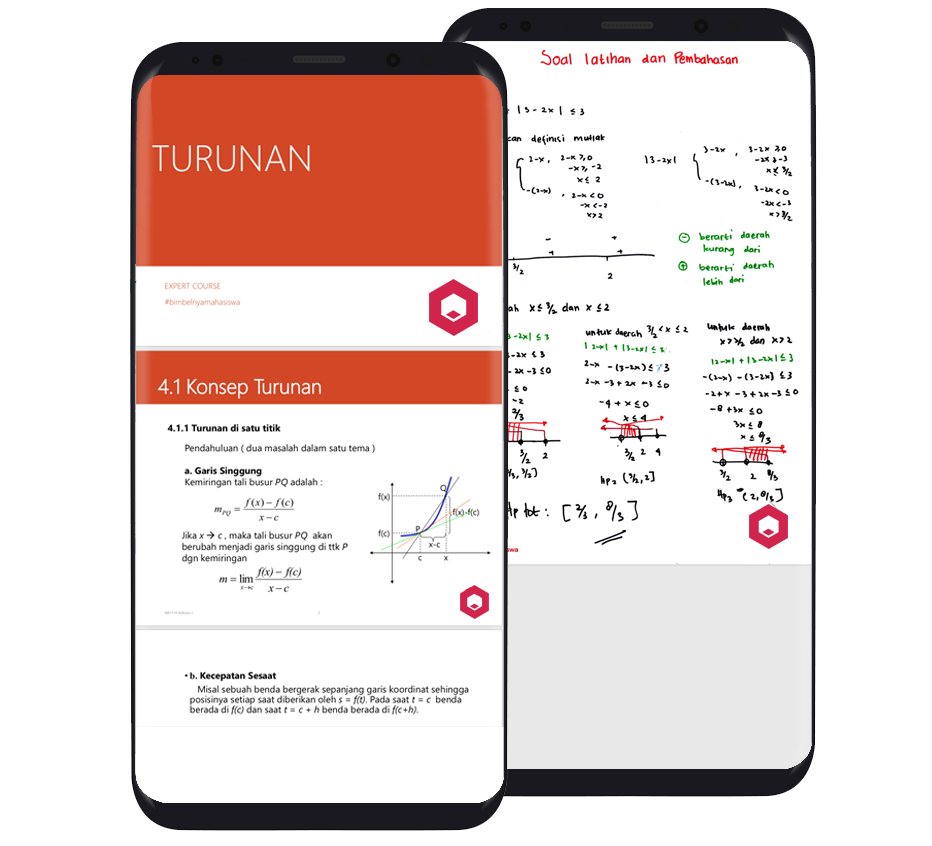 TURUNAN
EXPERT COURSE
#bimbelnyamahasiswa
4.1 Konsep Turunan
4.1.1 Turunan di satu titik
Pendahuluan ( dua masalah dalam satu tema )
a. Garis Singgung
Kemiringan tali busur PQ adalah :
m_PQ = (f(x) − f(c)) / (x − c)
Jika x → c , maka tali busur PQ akan
berubah menjadi garis singgung di ttk P
dgn kemiringan
m = lim x→c (f(x) − f(c)) / (x − c)
f(x)
Q
f(x)-f(c)
f(c)
P
x-c
c x
• b. Kecepatan Sesaat
Misal sebuah benda bergerak sepanjang garis koordinat sehingga
posisinya setiap saat diberikan oleh s = f(t). Pada saat t = c benda
berada di f(c) dan saat t = c + h benda berada di f(c+h).
Soal latihan dan Pembahasan
+ |3-2x| ≤ 3
definisi mutlak
2-x, 2-x ≥ 0
-x ≥ -2
x ≤ 2
-(2-x), 2-x < 0
-x < -2
x > 2
|3-2x|
3-2x, 3-2x ≥ 0
-2x ≥ -3
x ≤ 3/2
-(3-2x), 3-2x < 0
-2x < -3
x > 3/2
- +
+ +
3/2 2
⊖ berarti daerah
kurang dari
⊕ berarti daerah
lebih dari
x ≤ 3/2 dan x ≤ 2
3-2x| ≤ 3
-2x ≤ 3
-2x-3 ≤ 0
≤ 0
-2
2/3
3/2 2
3/2]
untuk daerah 3/2 < x ≤ 2
|2-x| + |3-2x| ≤ 3
2-x -(3-2x) ≤ 3
2-x -3+2x -3 ≤ 0
-4 + x ≤ 0
x ≤ 4
3/2 2 4
Hp₂ (3/2, 2]
untuk daerah
x > 3/2 dan x > 2
|2-x| + |3-2x| ≤ 3
-(2-x) - (3-2x) ≤ 3
-2+x -3+2x -3 ≤ 0
-8 +3x ≤ 0
3x ≤ 8
x ≤ 8/3
3/2 2 8/3
Hp₃ = (2, 8/3]
Hp tot : [2/3, 8/3]